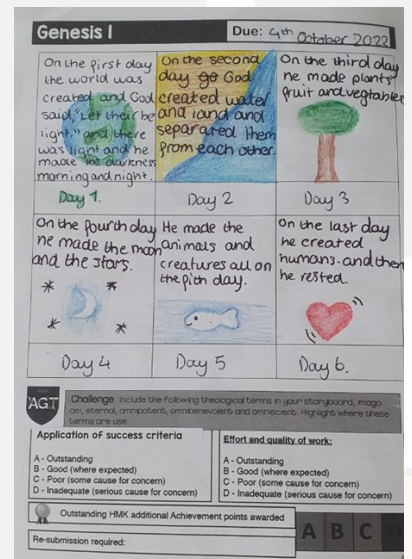 Genesis 1
Due: 4th October 2023
On the first day
the world was
created and God
said, "Let their be
light," and there
was light and he
made the darkness
morning and night.
Day 1.
On the second
day go God
created water
and land and
separated them
from each other.
Day 2
On the third day
he made plants
fruit and vegtables
Day 3
On the fourth day
he made the moon
and the stars.
Day 4
He made the
animals and
creatures all on
the fith day.
Day 5
On the last day
he created
humans. and then
he rested.
Day 6.
AGT
Challenge: Include the following theological terms in your storyboard, imago
dei, eternal, omnipotent, omnibenevolent and omniscient. Highlight where these
terms are use
Application of success criteria
A - Outstanding
B - Good (where expected)
C - Poor (some cause for concern)
D - Inadequate (serious cause for concern)
Effort and quality of work:
A - Outstanding
B - Good (where expected)
C - Poor (some cause for concern)
D - Inadequate (serious cause for concern)
Outstanding HMK additional Achievement points awarded
Re-submission required:
A B C